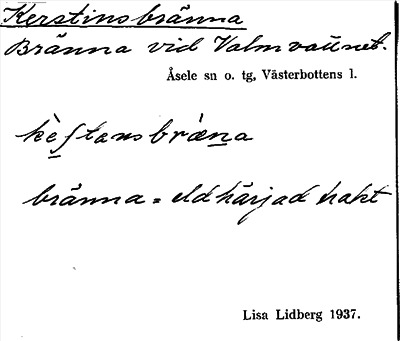 Kerstinsbränna
Bränna vid Valmvattnet.
Åsele sn o. tg, Västerbottens l.
kèʃtansbræ̀na
bränna = eldhärjad trakt
Lisa Lidberg 1937.